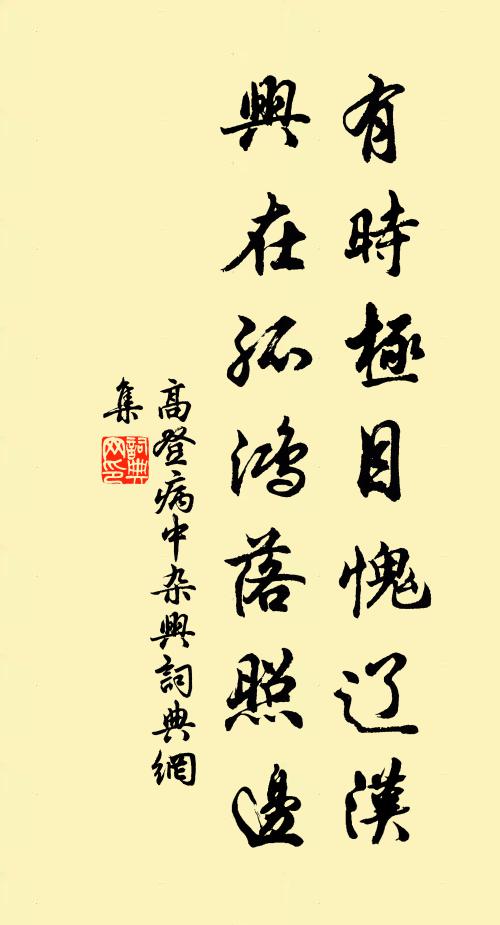 有時極目愧辽漠
興在孤鴻落照邊
高登病中杂興詞典網
集
詞典網印